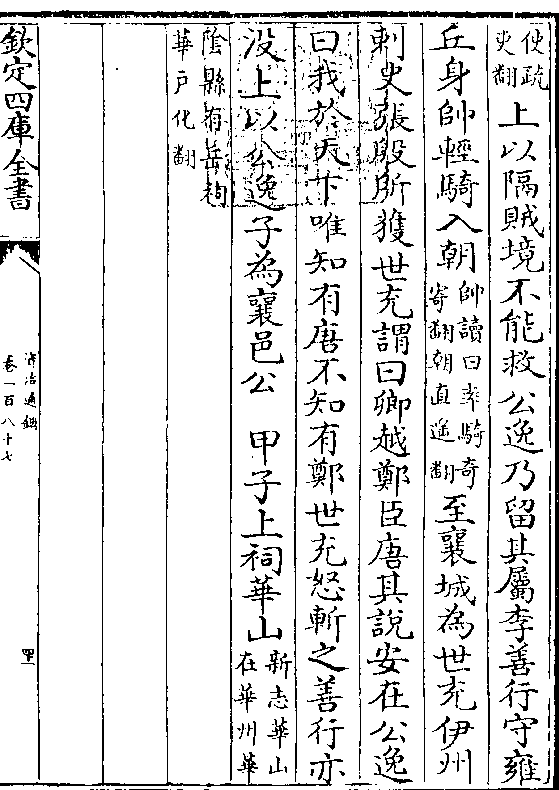 使疏
吏翻上以隔賊境不能救公逸乃留其屬李善行守雍
丘身帥輕騎入朝帥讀曰率騎奇
寄翻朝直遥翻至襄城為世充伊州
刺史張殷所獲世充謂曰卿越鄭臣唐其說安在公逸
曰我於天下唯知有唐不知有鄭世充怒斬之善行亦
没上以公逸子為襄邑公　甲子上祠華山新志華山
在華州華
隂縣有岳祠
華户化翻
欽定四庫全書
資治通鑑
卷一百八十七